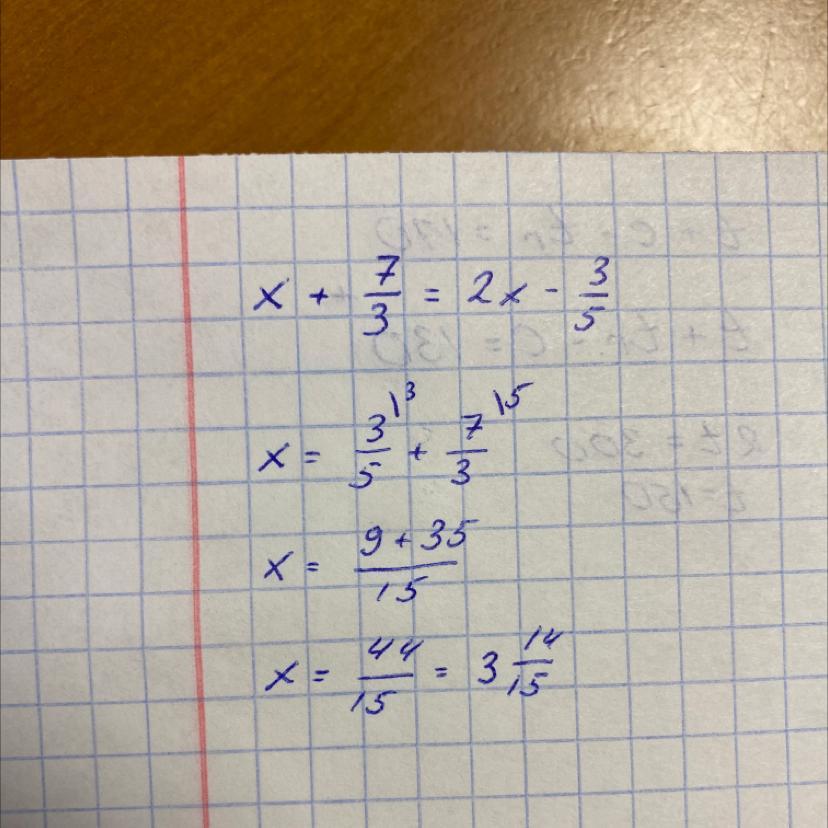 x + 7/3 = 2x - 3/5
x = 3/5 \3 + 7/3 \5
x = (9 + 35)/15
x = 44/15 = 3 14/15